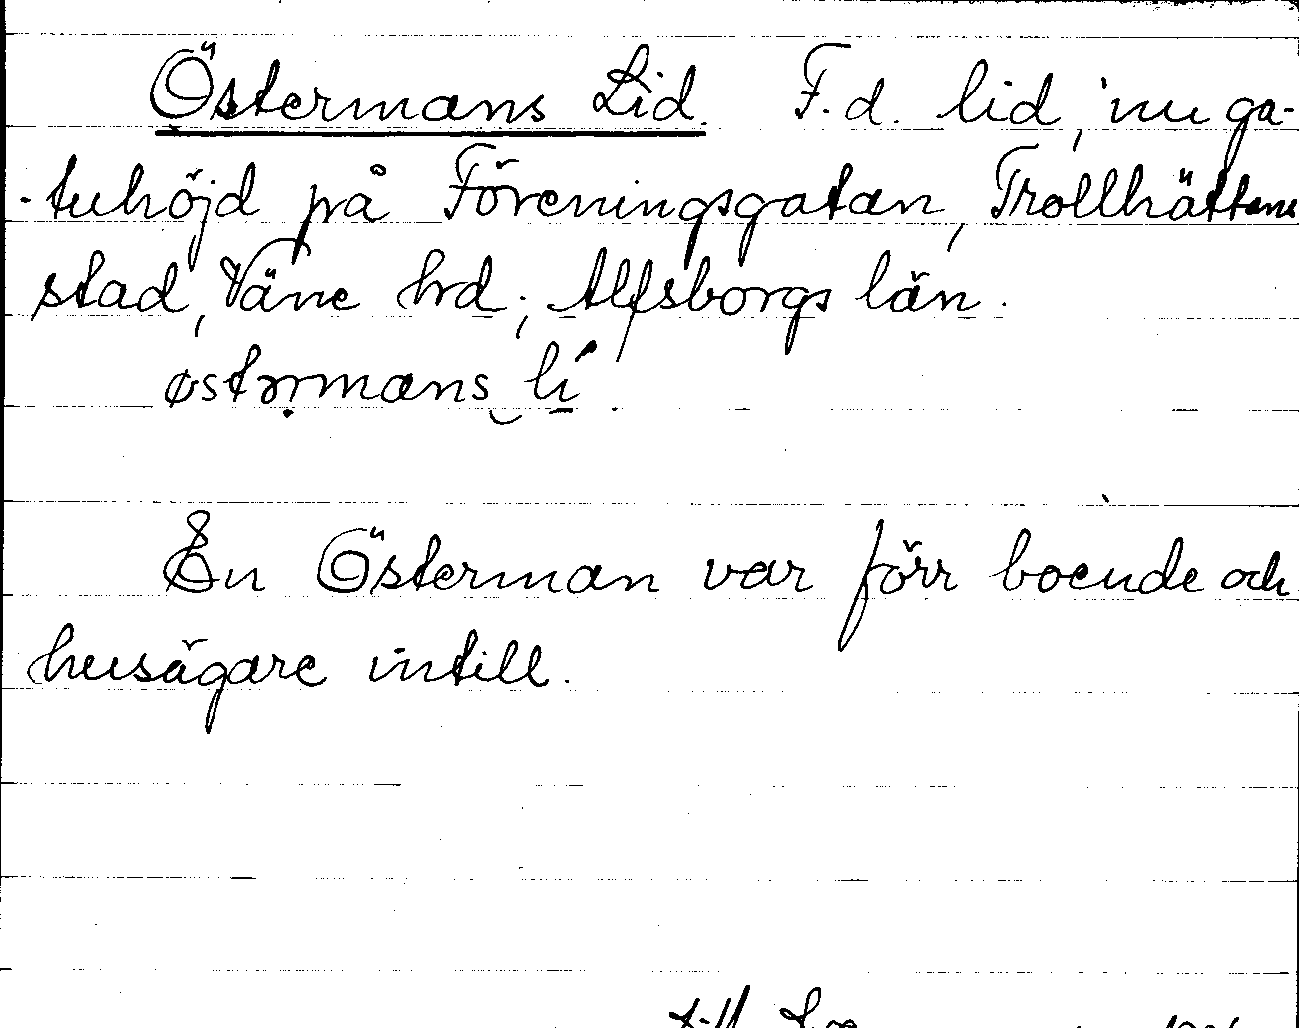 Östermans Lid. F.d. lid, nu ga-
-tuhöjd på Föreningsgatan, Trollhättans
stad, Väne hrd, Alfsborgs län.
østərmans li
En Österman var förr boende och
husägare intill.